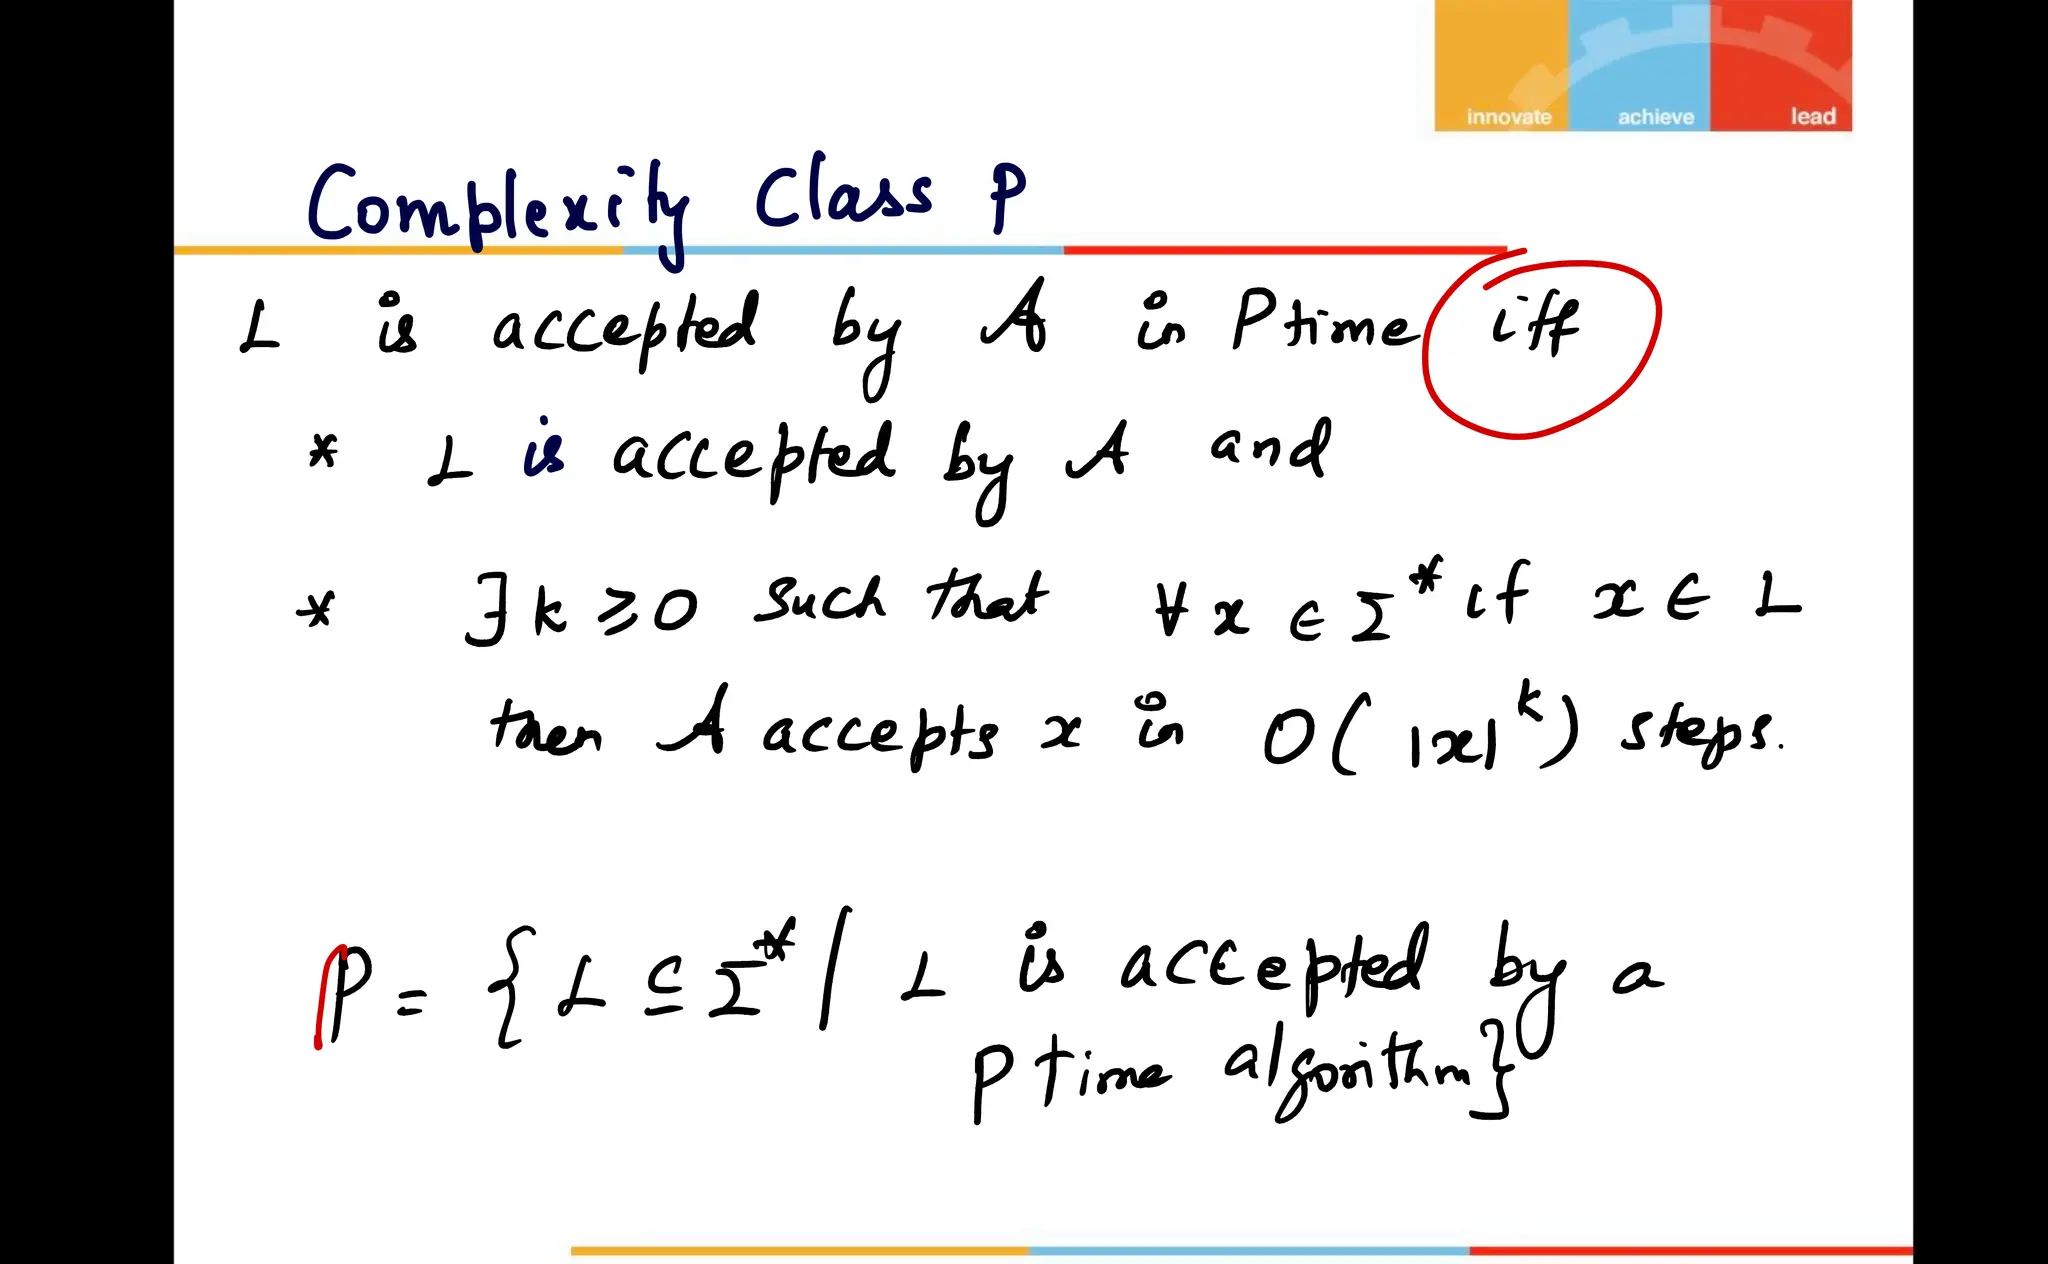 innovate achieve lead
Complexity Class P
L is accepted by A in Ptime iff
* L is accepted by A and
* ∃ k ⩾ 0 such that ∀ x ∈ Σ* if x ∈ L
then A accepts x in O( |x|^k ) steps.
P = { L ⊆ Σ* / L is accepted by a
P time algorithm}